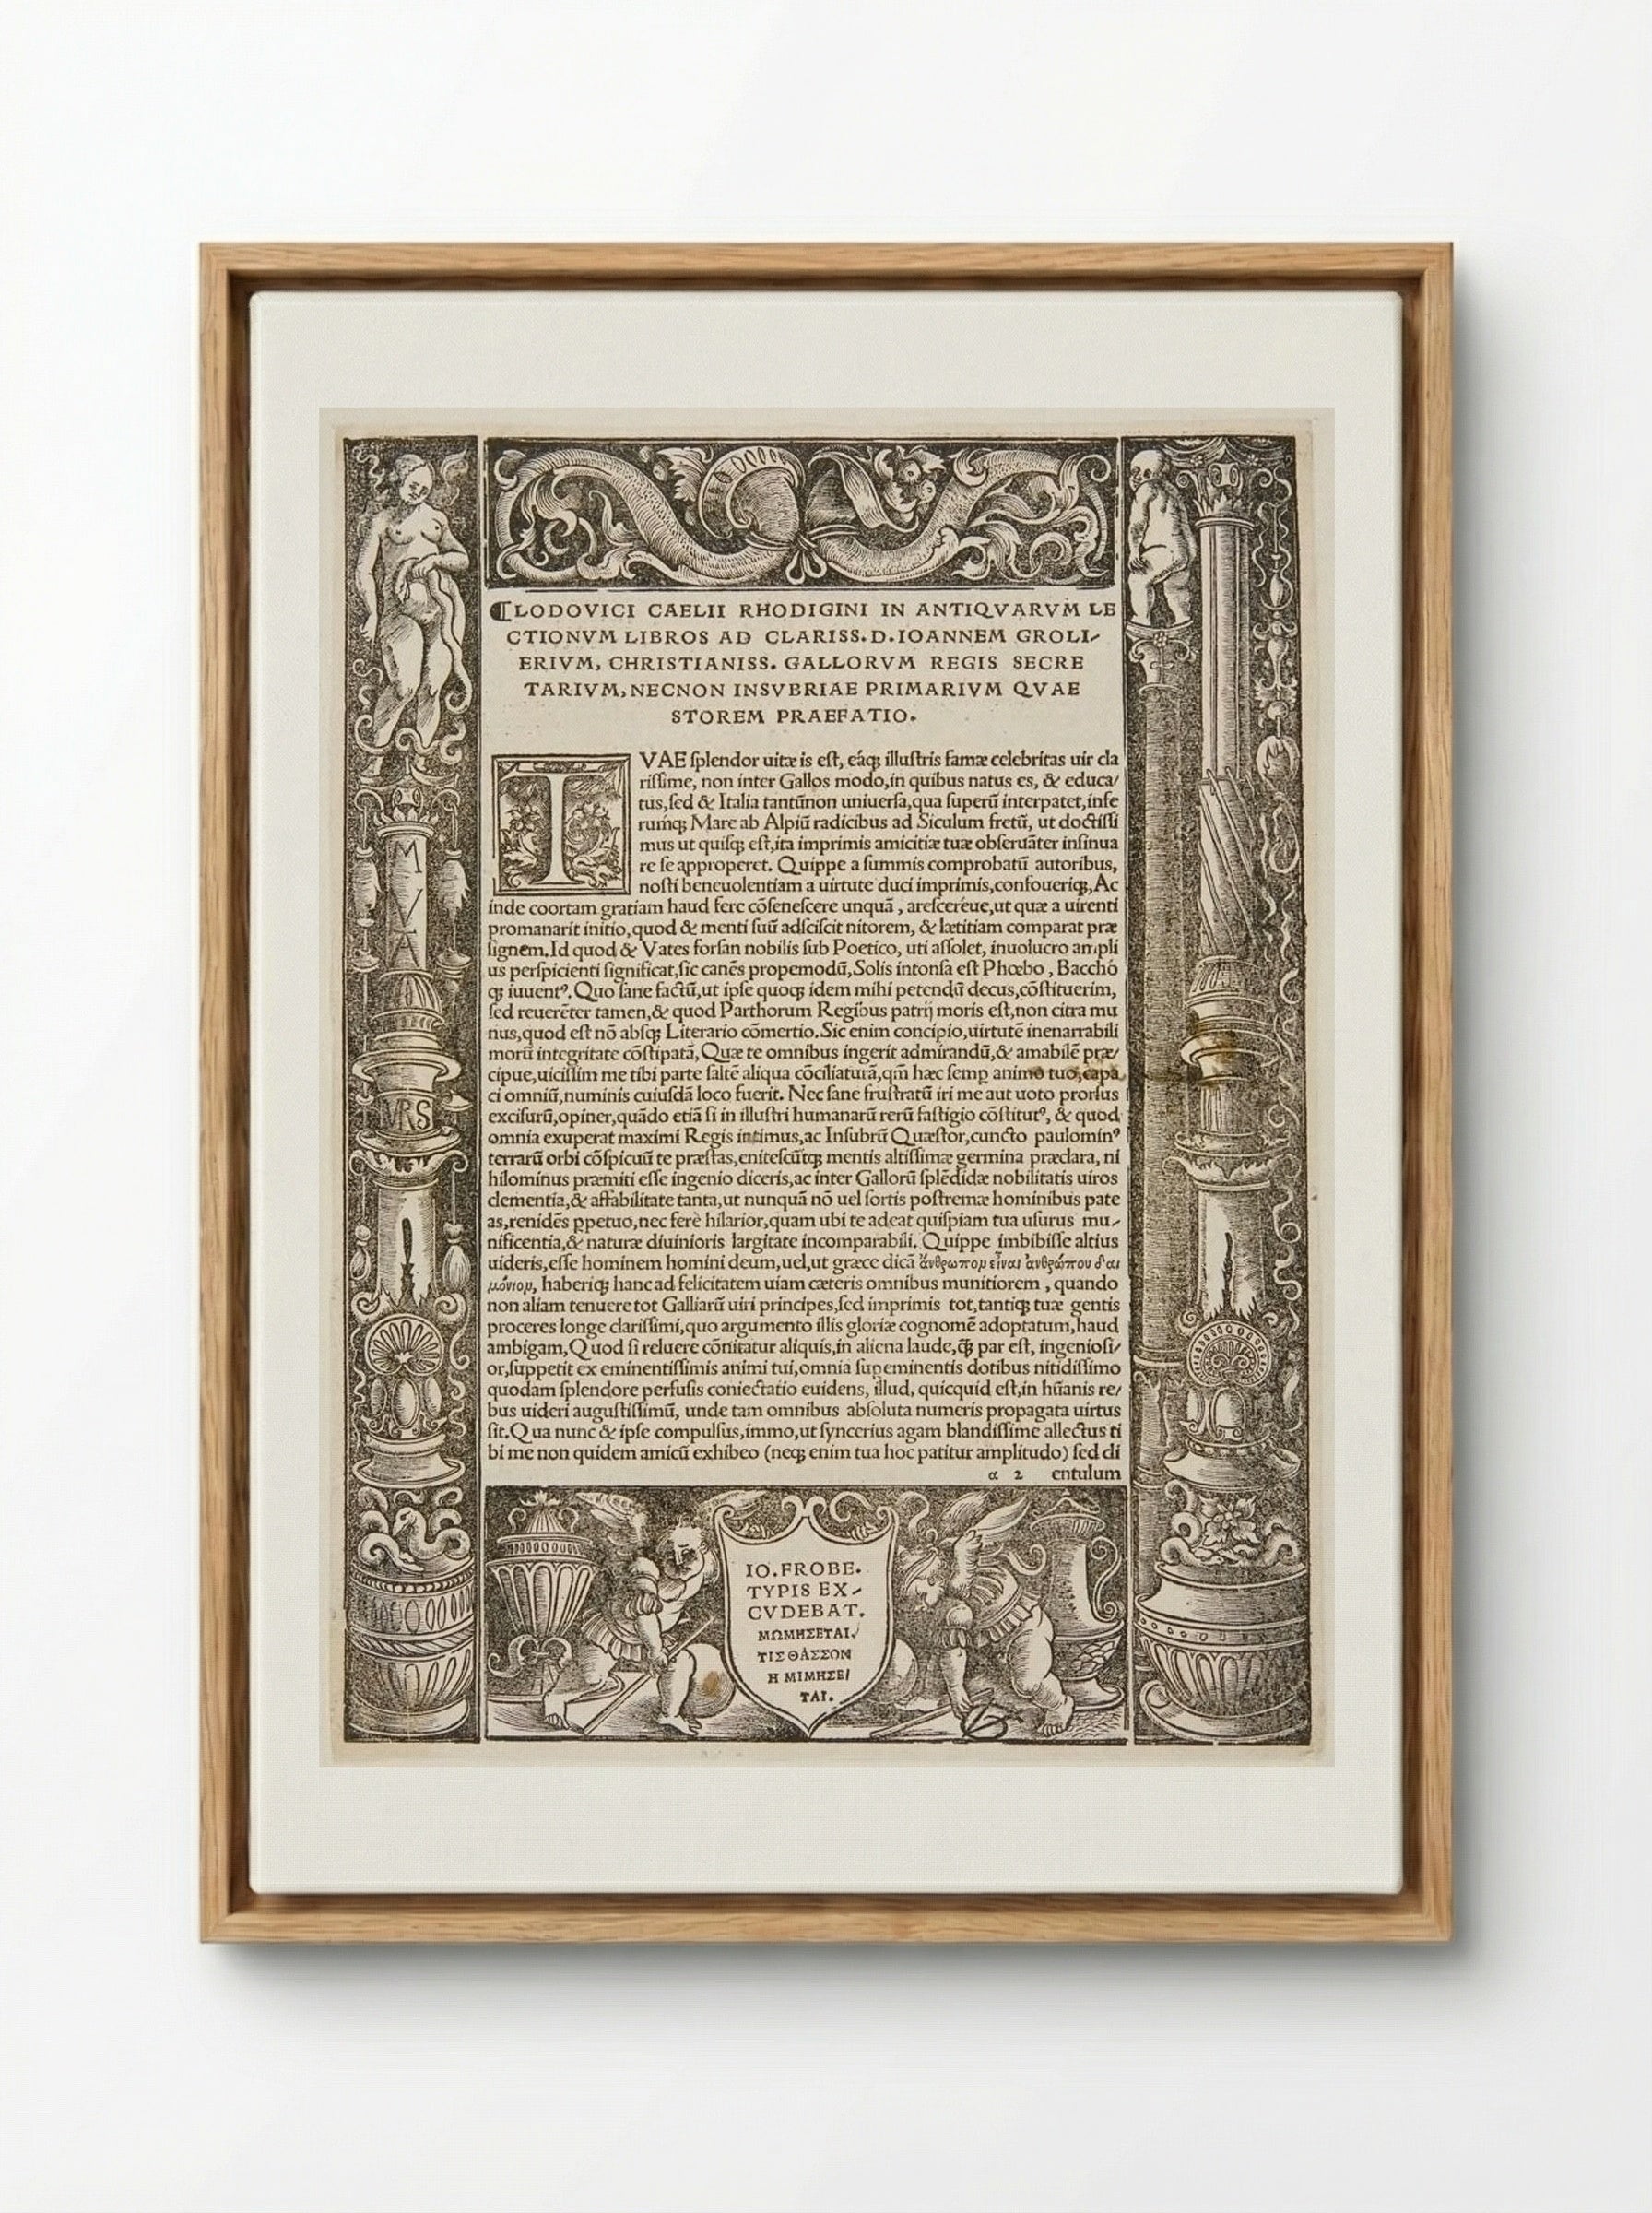 LODOVICI CAELII RHODIGINI IN ANTIQVARVM LE
CTIONVM LIBROS AD CLARISS.D.IOANNEM GROLI-
ERIVM, CHRISTIANISS. GALLORVM REGIS SECRE
TARIVM, NECNON INSVBRIAE PRIMARIVM QVAE
STOREM PRAEFATIO.
TVAE ſplendor uitæ is eſt, eáq; illuſtris famæ celebritas uir cla
riſſime, non inter Gallos modo,in quibus natus es, & educa/
tus,ſed & Italia tantũnon uniuerſa,qua ſuperũ interpatet,infe
rumq; Mare ab Alpiũ radicibus ad Siculum fretũ, ut doctiſſi
mus ut quiſq; eſt,ita imprimis amicitiæ tuæ obſeruãter inſinua
re ſe approperet. Quippe a ſummis comprobatũ autoribus,
noſti beneuolentiam a uirtute duci imprimis,confoueriq;,Ac
inde coortam gratiam haud fere cõſeneſcere unquã, areſcereúe,ut quæ a uirenti
promanarit initio,quod & menti ſuũ adſciſcit nitorem, & lætitiam comparat præ
ſignem.Id quod & Vates forſan nobilis ſub Poetico, uti aſſolet, inuolucro ampli
us perſpicienti ſignificat,ſic canẽs propemodũ,Solis intonſa eſt Phœbo, Bacchó
q; iuuentꝰ. Quo ſane factũ,ut ipſe quoq; idem mihi petendũ decus,cõſtituerim,
ſed reuerẽter tamen,& quod Parthorum Regibus patrij moris eſt,non citra mu
nus,quod eſt nõ abſq; Literario cõmertio.Sic enim concipio,uirtutẽ inenarrabili
morũ integritate cõſtipatã, Quæ te omnibus ingerit admirandũ,& amabilẽ præ/
cipue,uiciſſim me tibi parte ſaltẽ aliqua cõciliaturã,qm̃ hæc ſemp animo tuo,capa
ci omniũ,numinis cuiuſdã loco fuerit. Nec ſane fruſtratũ iri me aut uoto prorſus
exciſurũ,opiner,quãdo etiã ſi in illuſtri humanarũ rerũ faſtigio cõſtitutꝰ, & quod
omnia exuperat maximi Regis intimus,ac Inſubrũ Quæſtor,cuncto paulominꝰ
terrarũ orbi cõſpicuũ te præſtas,eniteſcũtq; mentis altiſſimæ germina præclara, ni
hilominus præmiti eſſe ingenio diceris,ac inter Gallorũ ſplẽdidæ nobilitatis uiros
clementia,& affabilitate tanta,ut nunquã nõ uel ſortis poſtremæ hominibus pate
as,renidẽs ꝑpetuo,nec ferè hilarior,quam ubi te adeat quiſpiam tua uſurus mu-
nificentia,& naturæ diuinioris largitate incomparabili. Quippe imbibiſſe altius
uideris,eſſe hominem homini deum,uel,ut græce dicã ἄνθρωπον εἶναι ἀνθρώπου δαι
μόνιον, haberiq; hanc ad felicitatem uiam cæteris omnibus munitiorem , quando
non aliam tenuere tot Galliarũ uiri principes,ſed imprimis tot,tantiq; tuæ gentis
proceres longe clariſſimi,quo argumento illis gloriæ cognomẽ adoptatum,haud
ambigam,Quod ſi reluere cõnitatur aliquis,in aliena laude,q̃ par eſt, ingenioſi/
or,ſuppetit ex eminentiſſimis animi tui,omnia ſupeminentis dotibus nitidiſſimo
quodam ſplendore perfuſis coniectatio euidens, illud, quicquid eſt,in hũanis re/
bus uideri auguſtiſſimũ, unde tam omnibus abſoluta numeris propagata uirtus
ſit.Qua nunc & ipſe compulſus,immo,ut ſyncerius agam blandiſſime allectus ti
bi me non quidem amicũ exhibeo (neq; enim tua hoc patitur amplitudo) ſed cli
α 2 entulum
MVA
VRS
IO.FROBE.
TYPIS EX-
CVDEBAT.
ΜΩΜΗΣΕΤΑΙ/
ΤΙΣ ΘΑΣΣΟΝ
Η ΜΙΜΗΣΕ/
ΤΑΙ.